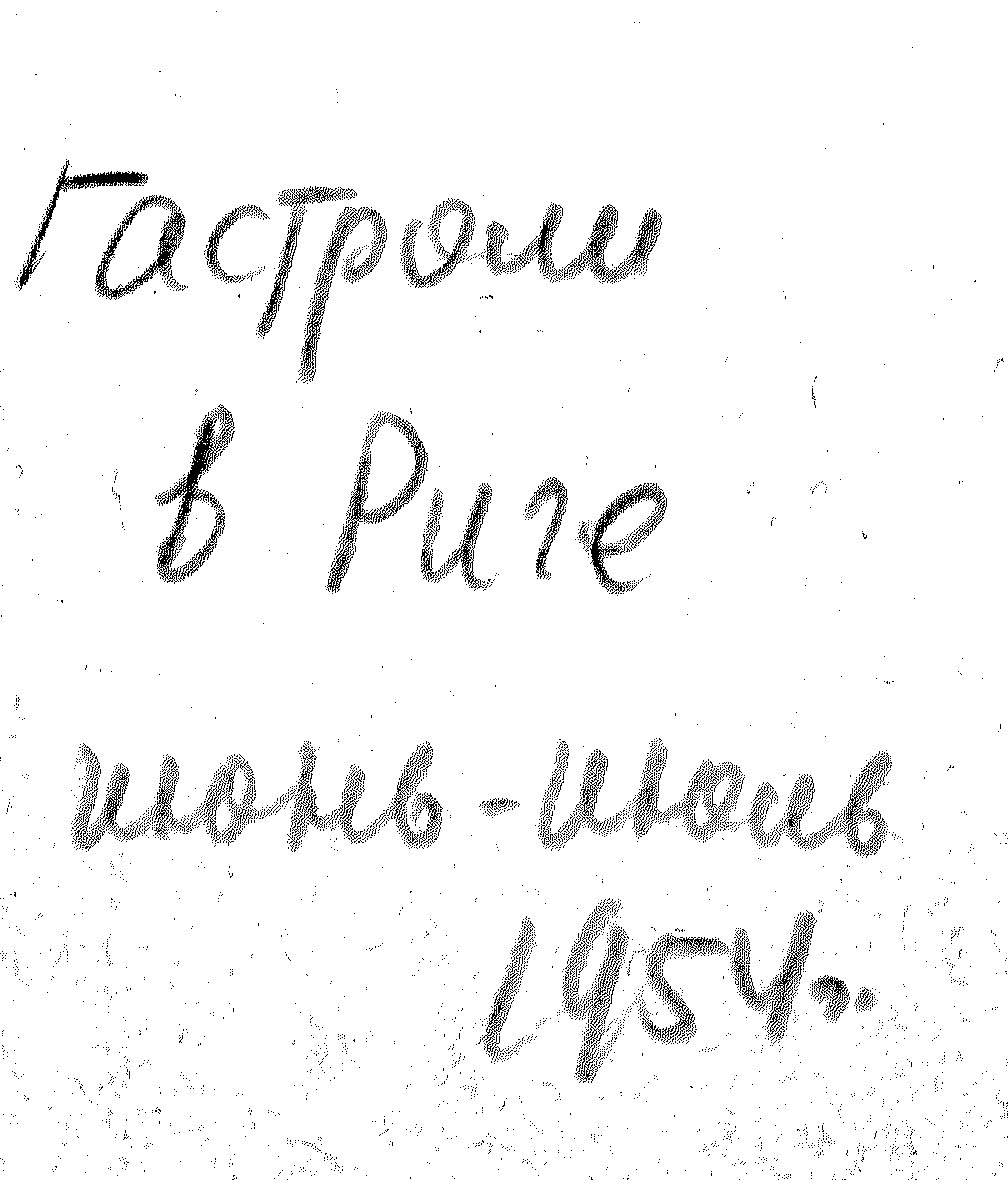 Гастроли
в Риге
июнь-июль
1954г.